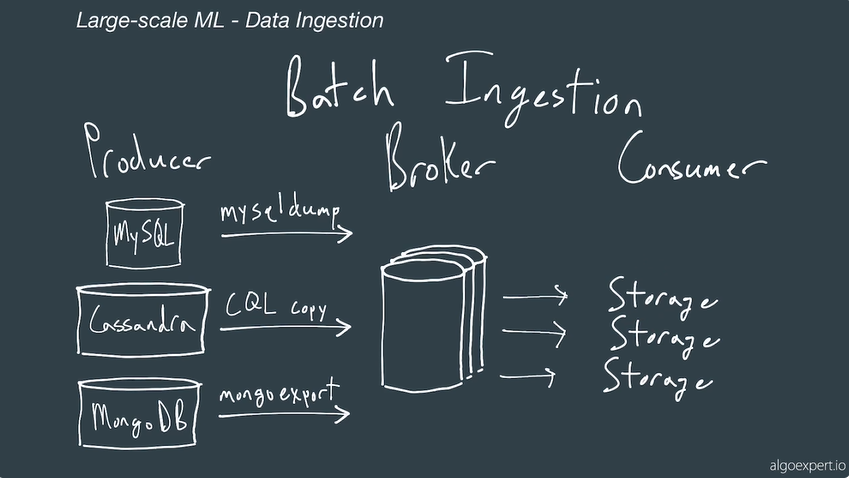 Large-scale ML - Data Ingestion
Batch Ingestion
Producer
Broker
Consumer
MySQL
mysqldump
Cassandra
CQL copy
MongoDB
mongoexport
Storage
Storage
Storage
algoexpert.io